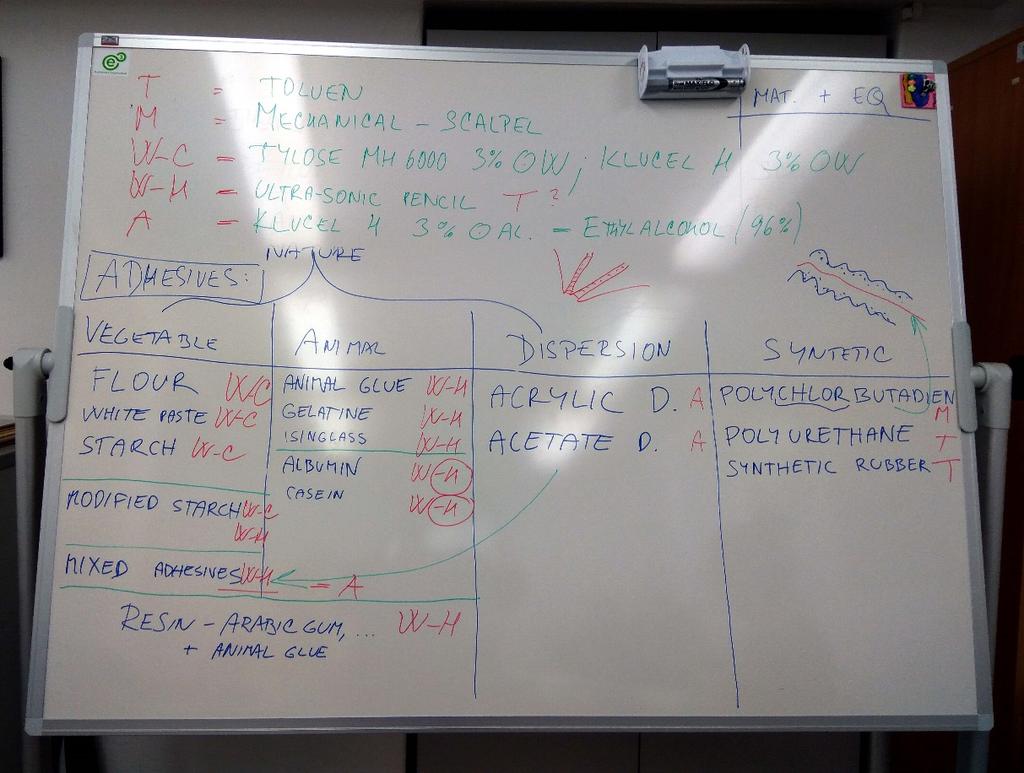 T = TOLUEN
MAT. + EQ
M = MECHANICAL - SCALPEL
W-C = TYLOSE MH 6000 3% OW; KLUCEL H 3% OW
W-H = ULTRA-SONIC PENCIL T?
A = KLUCEL H 3% O AL. - ETHYLALCOHOL (96%)
NATURE
ADHESIVES:
VEGETABLE
ANIMAL
DISPERSION
SYNTETIC
FLOUR W-C
WHITE PASTE W-C
STARCH W-C
MODIFIED STARCH W-C
W-H
MIXED ADHESIVES W-H = A
RESIN - ARABIC GUM, ... W-H
+ ANIMAL GLUE
ANIMAL GLUE W-H
GELATINE W-H
ISINGLASS W-H
ALBUMIN W-H
CASEIN W-H
ACRYLIC D. A
ACETATE D. A
POLYCHLORBUTADIEN
M
POLYURETHANE T
SYNTHETIC RUBBER T